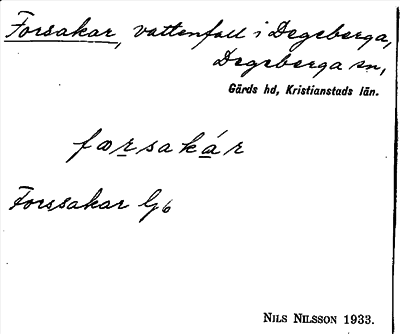 Forsakar, vattenfall i Degeberga,
Degeberga sn,
Gärds hd, Kristianstads län.
forsakár
Forssakar Gb
NILS NILSSON 1933.